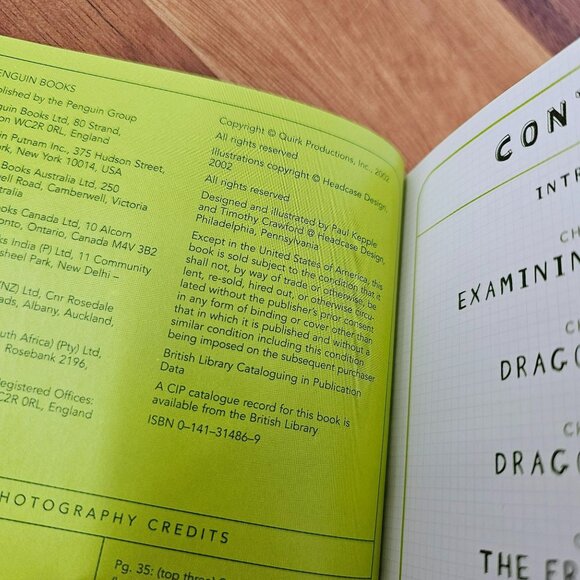 PENGUIN BOOKS
Published by the Penguin Group
Penguin Books Ltd, 80 Strand,
WC2R 0RL, England
Putnam Inc., 375 Hudson Street,
York, New York 10014, USA
Books Australia Ltd, 250
Road, Camberwell, Victoria
Books Canada Ltd, 10 Alcorn
Ontario, Canada M4V 3B2
India (P) Ltd, 11 Community
Park, New Delhi –
(NZ) Ltd, Cnr Rosedale
Albany, Auckland,
Africa) (Pty) Ltd,
Rosebank 2196,
Registered Offices:
WC2R 0RL, England
Copyright © Quirk Productions, Inc., 2002
All rights reserved
Illustrations copyright © Headcase Design,
2002
All rights reserved
Designed and illustrated by Paul Kepple
and Timothy Crawford @ Headcase Design,
Philadelphia, Pennsylvania
Except in the United States of America, this
book is sold subject to the condition that it
shall not, by way of trade or otherwise, be
lent, re-sold, hired out, or otherwise circu-
lated without the publisher's prior consent
in any form of binding or cover other than
that in which it is published and without a
similar condition including this condition
being imposed on the subsequent purchaser
British Library Cataloguing in Publication
Data
A CIP catalogue record for this book is
available from the British Library
ISBN 0–141–31486–9
PHOTOGRAPHY CREDITS
Pg. 35: (top three)
CON
INTR
CH
EXAMININ
C
DRAGO
CH
DRAGO
THE FR